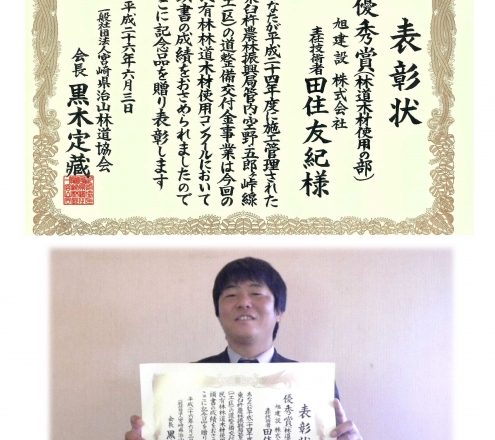 表彰状
優秀賞(林道木材使用の部)
旭建設株式会社
主任技術者 田住友紀様
なたが平成二十四年度に施工管理された
東臼杵農林振興局管内空野五郎ヶ峠線
工区)の道整備交付金事業は今回の
有林林道木材使用コンクールにおいて
頭書の成績をおさめられましたので
こに記念品を贈り表彰します
平成二十六年六月三日
一般社団法人宮崎県治山林道協会
会長 黒木定藏
表彰状
優秀賞(林道
旭建設株
主任技術者 田住